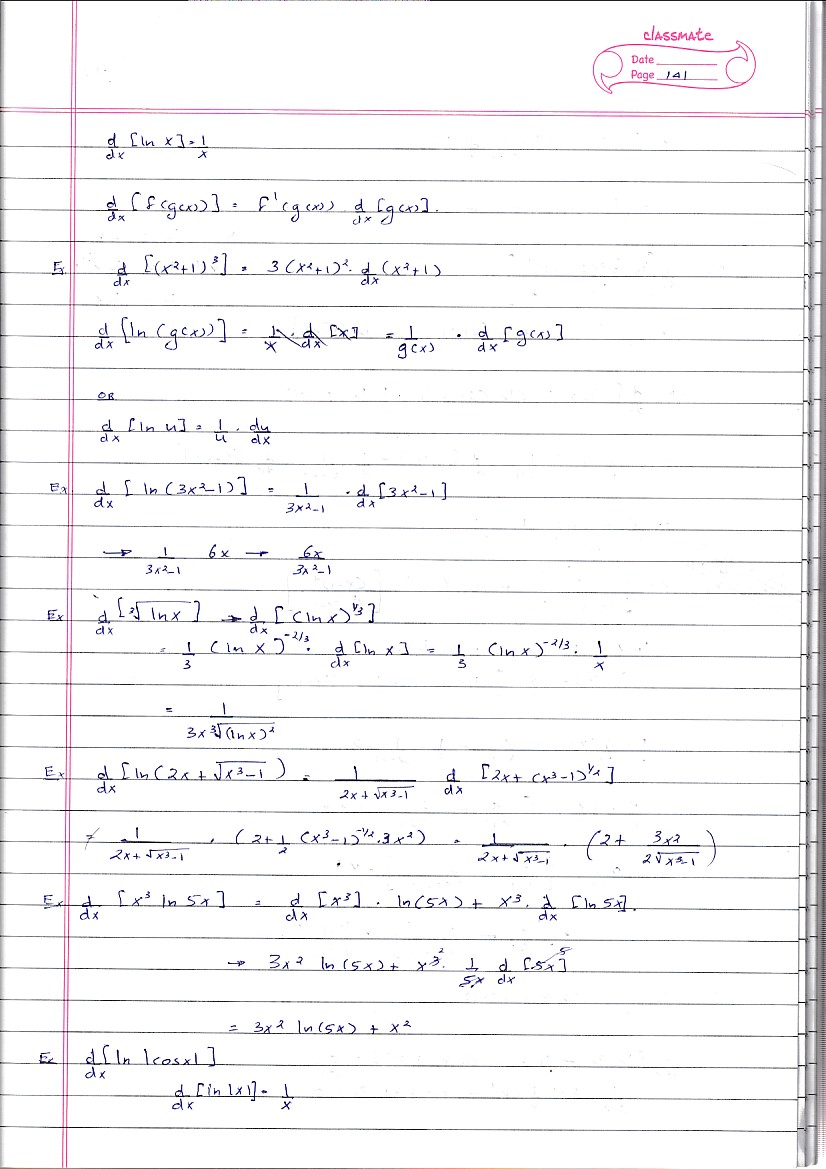 classmate
Date
Page 141
d/dx [ln x] = 1/x
d/dx [f(g(x))] = f'(g(x)) d/dx [g(x)].
E. d/dx [(x²+1)³] = 3(x²+1)². d/dx (x²+1)
d/dx [ln(g(x))] = 1/x · d/dx [x] = 1/g(x) · d/dx [g(x)]
OR
d/dx [ln u] = 1/u · du/dx
Ex d/dx [ln(3x²-1)] = 1/3x²-1 · d/dx [3x²-1]
→ 1/3x²-1 6x → 6x/3x²-1
Ex d/dx [³√ln x] → d/dx [(ln x)^1/3]
= 1/3 (ln x)^-2/3 · d/dx [ln x] = 1/3 (ln x)^-2/3 · 1/x
= 1/3x ³√(ln x)²
Ex d/dx [ln(2x + √x³-1) = 1/2x + √x³-1 d/dx [2x + (x³-1)^1/2]
= 1/2x + √x³-1 · (2 + 1/2 (x³-1)^-1/2 · 3x²) = 1/2x + √x³-1 · (2 + 3x²/2√x³-1)
Ex d/dx [x³ ln 5x] = d/dx [x³] · ln(5x) + x³ · d/dx [ln 5x].
→ 3x² ln(5x) + x³ 2 · 1/5x d/dx [5x] 5
= 3x² ln(5x) + x²
Ex d/dx [ln |cosx|]
d/dx [ln |x|] = 1/x